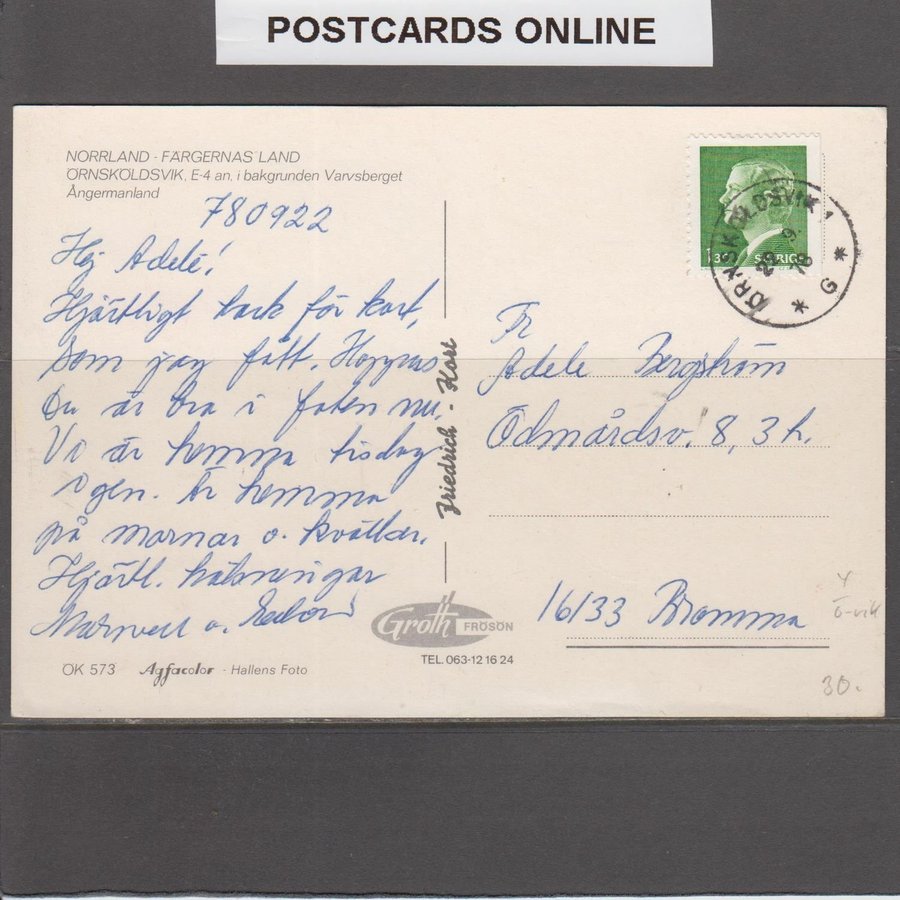 POSTCARDS ONLINE
NORRLAND - FÄRGERNAS LAND
ÖRNSKÖLDSVIK, E-4 an, i bakgrunden Varvsberget
Ångermanland
780922
Hej Adele!
Hjärtligt tack för kort,
som jag fått. Hoppas
Du är bra i foten nu.
Vi är hemma tisdag
igen. Är hemma
på mornar o. kvällar.
Hjärtl. hälsningar
o.
ÖK 573 Agfacolor - Hallens Foto
Friedrich - Kort
Groth FRÖSÖN
TEL. 063-12 16 24
130 SVERIGE
ÖRNSKÖLDSVIK 1
22 9 78
* G *
Fr
Adele Bergström
Ödmårdsv. 8, 3 h.
16133 Bromma
Ö-vik
30.